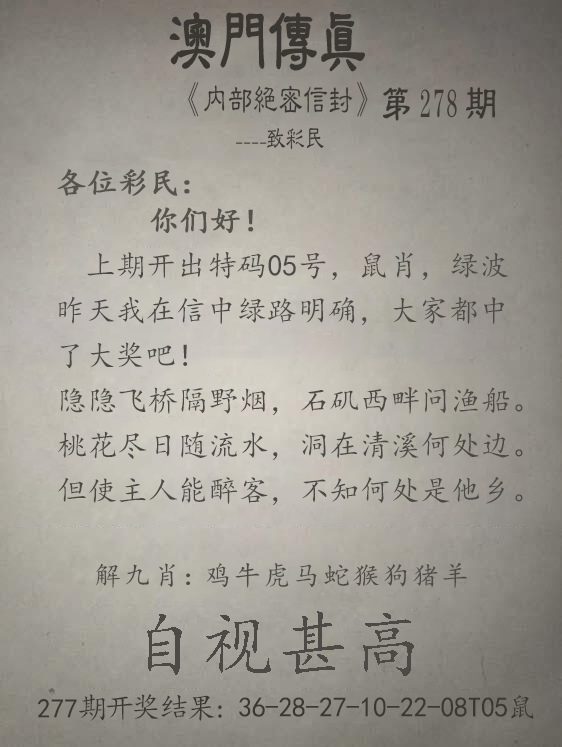 澳門傳眞
《内部絕密信封》第278期
----致彩民
各位彩民：
你们好！
上期开出特码05号，鼠肖，绿波
昨天我在信中绿路明确，大家都中
了大奖吧！
隐隐飞桥隔野烟，石矶西畔问渔船。
桃花尽日随流水，洞在清溪何处边。
但使主人能醉客，不知何处是他乡。
解九肖：鸡牛虎马蛇猴狗猪羊
自视甚高
277期开奖结果：36-28-27-10-22-08T05鼠